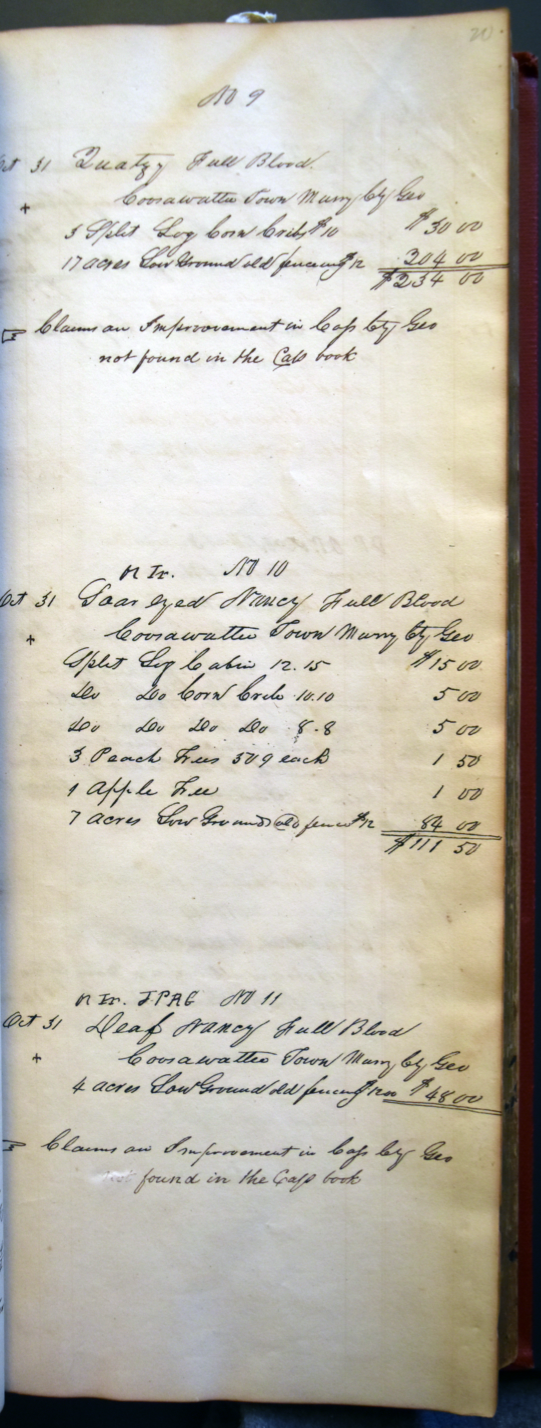 20
No 9
Oct 31 Quatzy Full Blood.
+ Coosawattee Town Murry Cty Geo
3 Split Log Corn Cribs $10 $30 00
17 acres Low Ground old fencing $12 204 00
$234 00
Claims an Improovement in Cass Cty Geo
not found in the Cass book
No 10
Oct 31 Soar eyed Nancy Full Blood
+ Coosawattee Town Murry Cty Geo
Split Log Cabin 12.15 $15 00
Do Do Corn Crib 10.10 5 00
Do Do Do Do 8-8 5 00
3 Peach Trees 50¢ each 1 50
1 Apple Tree 1 00
7 acres Low Ground old fence $12 84 00
$111 50
No 11
Oct 31 Deaf Nancy Full Blood
+ Coosawattee Town Murry Cty Geo
4 acres Low Ground old fencing $48 00
Claims an Improvement in Cass Cty Geo
not found in the Cass book